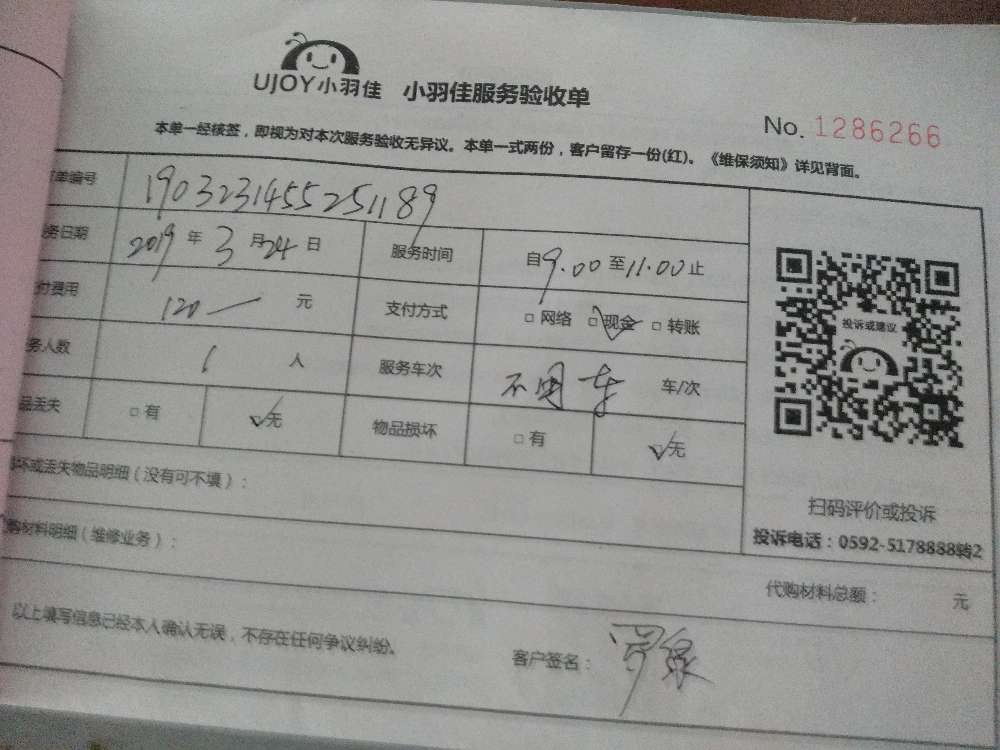 UJOY小羽佳 小羽佳服务验收单
No. 1286266
本单一经核签，即视为对本次服务验收无异议。本单一式两份，客户留存一份(红)。《维保须知》详见背面。
单编号 1903231455251189
务日期 2019 年 3 月 24 日 服务时间 自 9.00 至 11.00 止
付费用 120— 元 支付方式 □ 网络 □ 现金 □ 转账
务人数 1 人 服务车次 不用车 车/次
品丢失 □ 有 □ 无 物品损坏 □ 有 □ 无
投诉或建议
坏或丢失物品明细（没有可不填）：
扫码评价或投诉
投诉电话：0592-5178888转2
购材料明细（维修业务）：
代购材料总额： 元
以上填写信息已经本人确认无误，不存在任何争议纠纷。
客户签名：